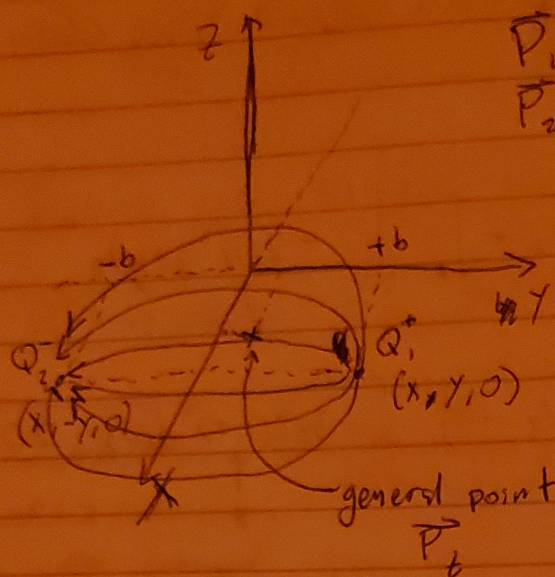 Z
P₁
P₂
-b
+b
Y
Q₂⁻
Q₁⁺
(x, y, 0)
(x, -y, 0)
X
general point
P_t